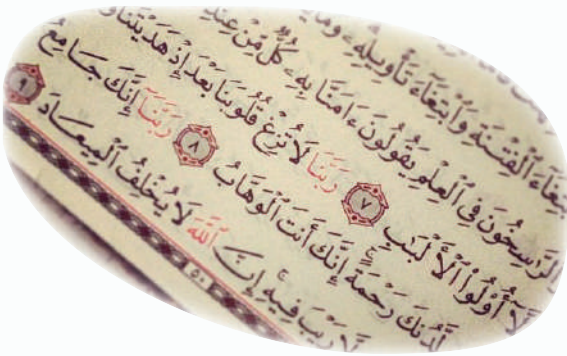 ٱبْتِغَآءَ ٱلْفِتْنَةِ وَٱبْتِغَآءَ تَأْوِيلِهِۦ وَمَا
وَٱلرَّٰسِخُونَ فِى ٱلْعِلْمِ يَقُولُونَ ءَامَنَّا بِهِۦ كُلٌّ مِّنْ عِندِ
إِلَّآ أُو۟لُوا۟ ٱلْأَلْبَٰبِ ٧ رَبَّنَا لَا تُزِغْ قُلُوبَنَا بَعْدَ إِذْ هَدَيْتَنَا وَ
لَّدُنكَ رَحْمَةً إِنَّكَ أَنتَ ٱلْوَهَّابُ ٨ رَبَّنَآ إِنَّكَ جَامِعُ
لَّا رَيْبَ فِيهِ إِنَّ ٱللَّهَ لَا يُخْلِفُ ٱلْمِيعَادَ ٩
٥٠